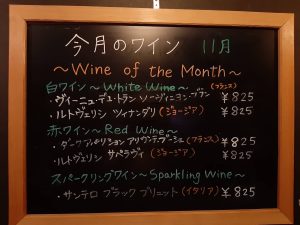 今月のワイン 11月
～Wine of the Month～
白ワイン～White Wine～ (フランス)
・ヴィーニュ・デュ・トラン ソーヴィニヨン・ブラン ¥825
・ルトヴェリシ ツィナンダリ (ジョージア) ¥825
赤ワイン～Red Wine～
・ダーク (フランス) ¥825
・ルトヴェリシ サペラヴィ (ジョージア) ¥825
スパークリングワイン～Sparkling Wine～
・サンテロ ブラック ブリュット (イタリア) ¥825